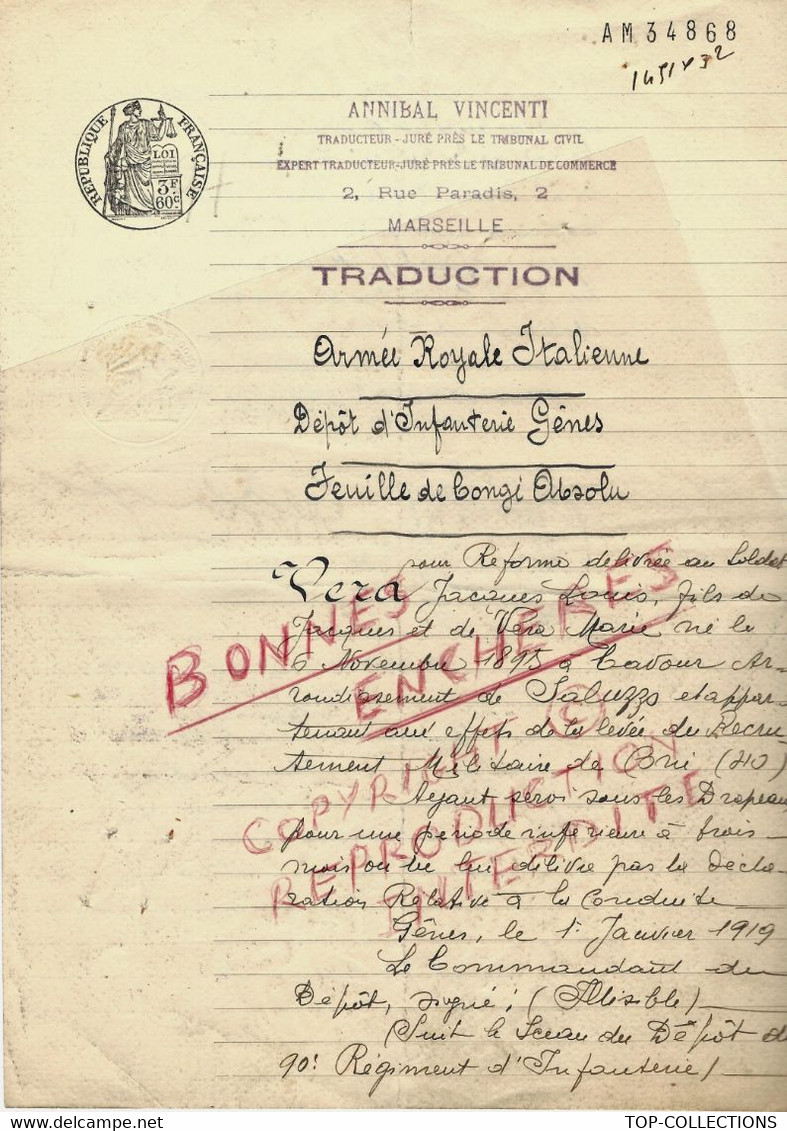 AM34868
RÉPUBLIQUE FRANÇAISE
LOI
3F
60c
ANNIBAL VINCENTI
TRADUCTEUR-JURÉ PRÈS LE TRIBUNAL CIVIL
EXPERT TRADUCTEUR-JURÉ PRÈS LE TRIBUNAL DE COMMERCE
2, Rue Paradis, 2
MARSEILLE
TRADUCTION
Armée Royale Italienne
Dépôt d'Infanterie Gênes
Feuille de Congé Absolu
pour Réforme délivrée au Soldat
Vera Jacques Louis, fils de
Jacques et de Vera Marie né le
6 Novembre 1895 à Cavour Ar-
rondissement de Saluzzo et appar-
tenant aux effets de la levée du Recru-
tement Militaire de Coni (40)
Ayant servi sous les Drapeaux
pour une période inférieure à trois
mois on ne lui délivre pas la décla-
ration Relative à la Conduite
Gênes, le 1: Janvier 1919
Le Commandant du
Dépôt, signé: (Illisible)
(Suit le Sceau du Dépôt du
90: Régiment d'Infanterie)
BONNES
ENCHERES
COPYRIGHT ©
REPRODUCTION
INTERDITE
TOP-COLLECTIONS